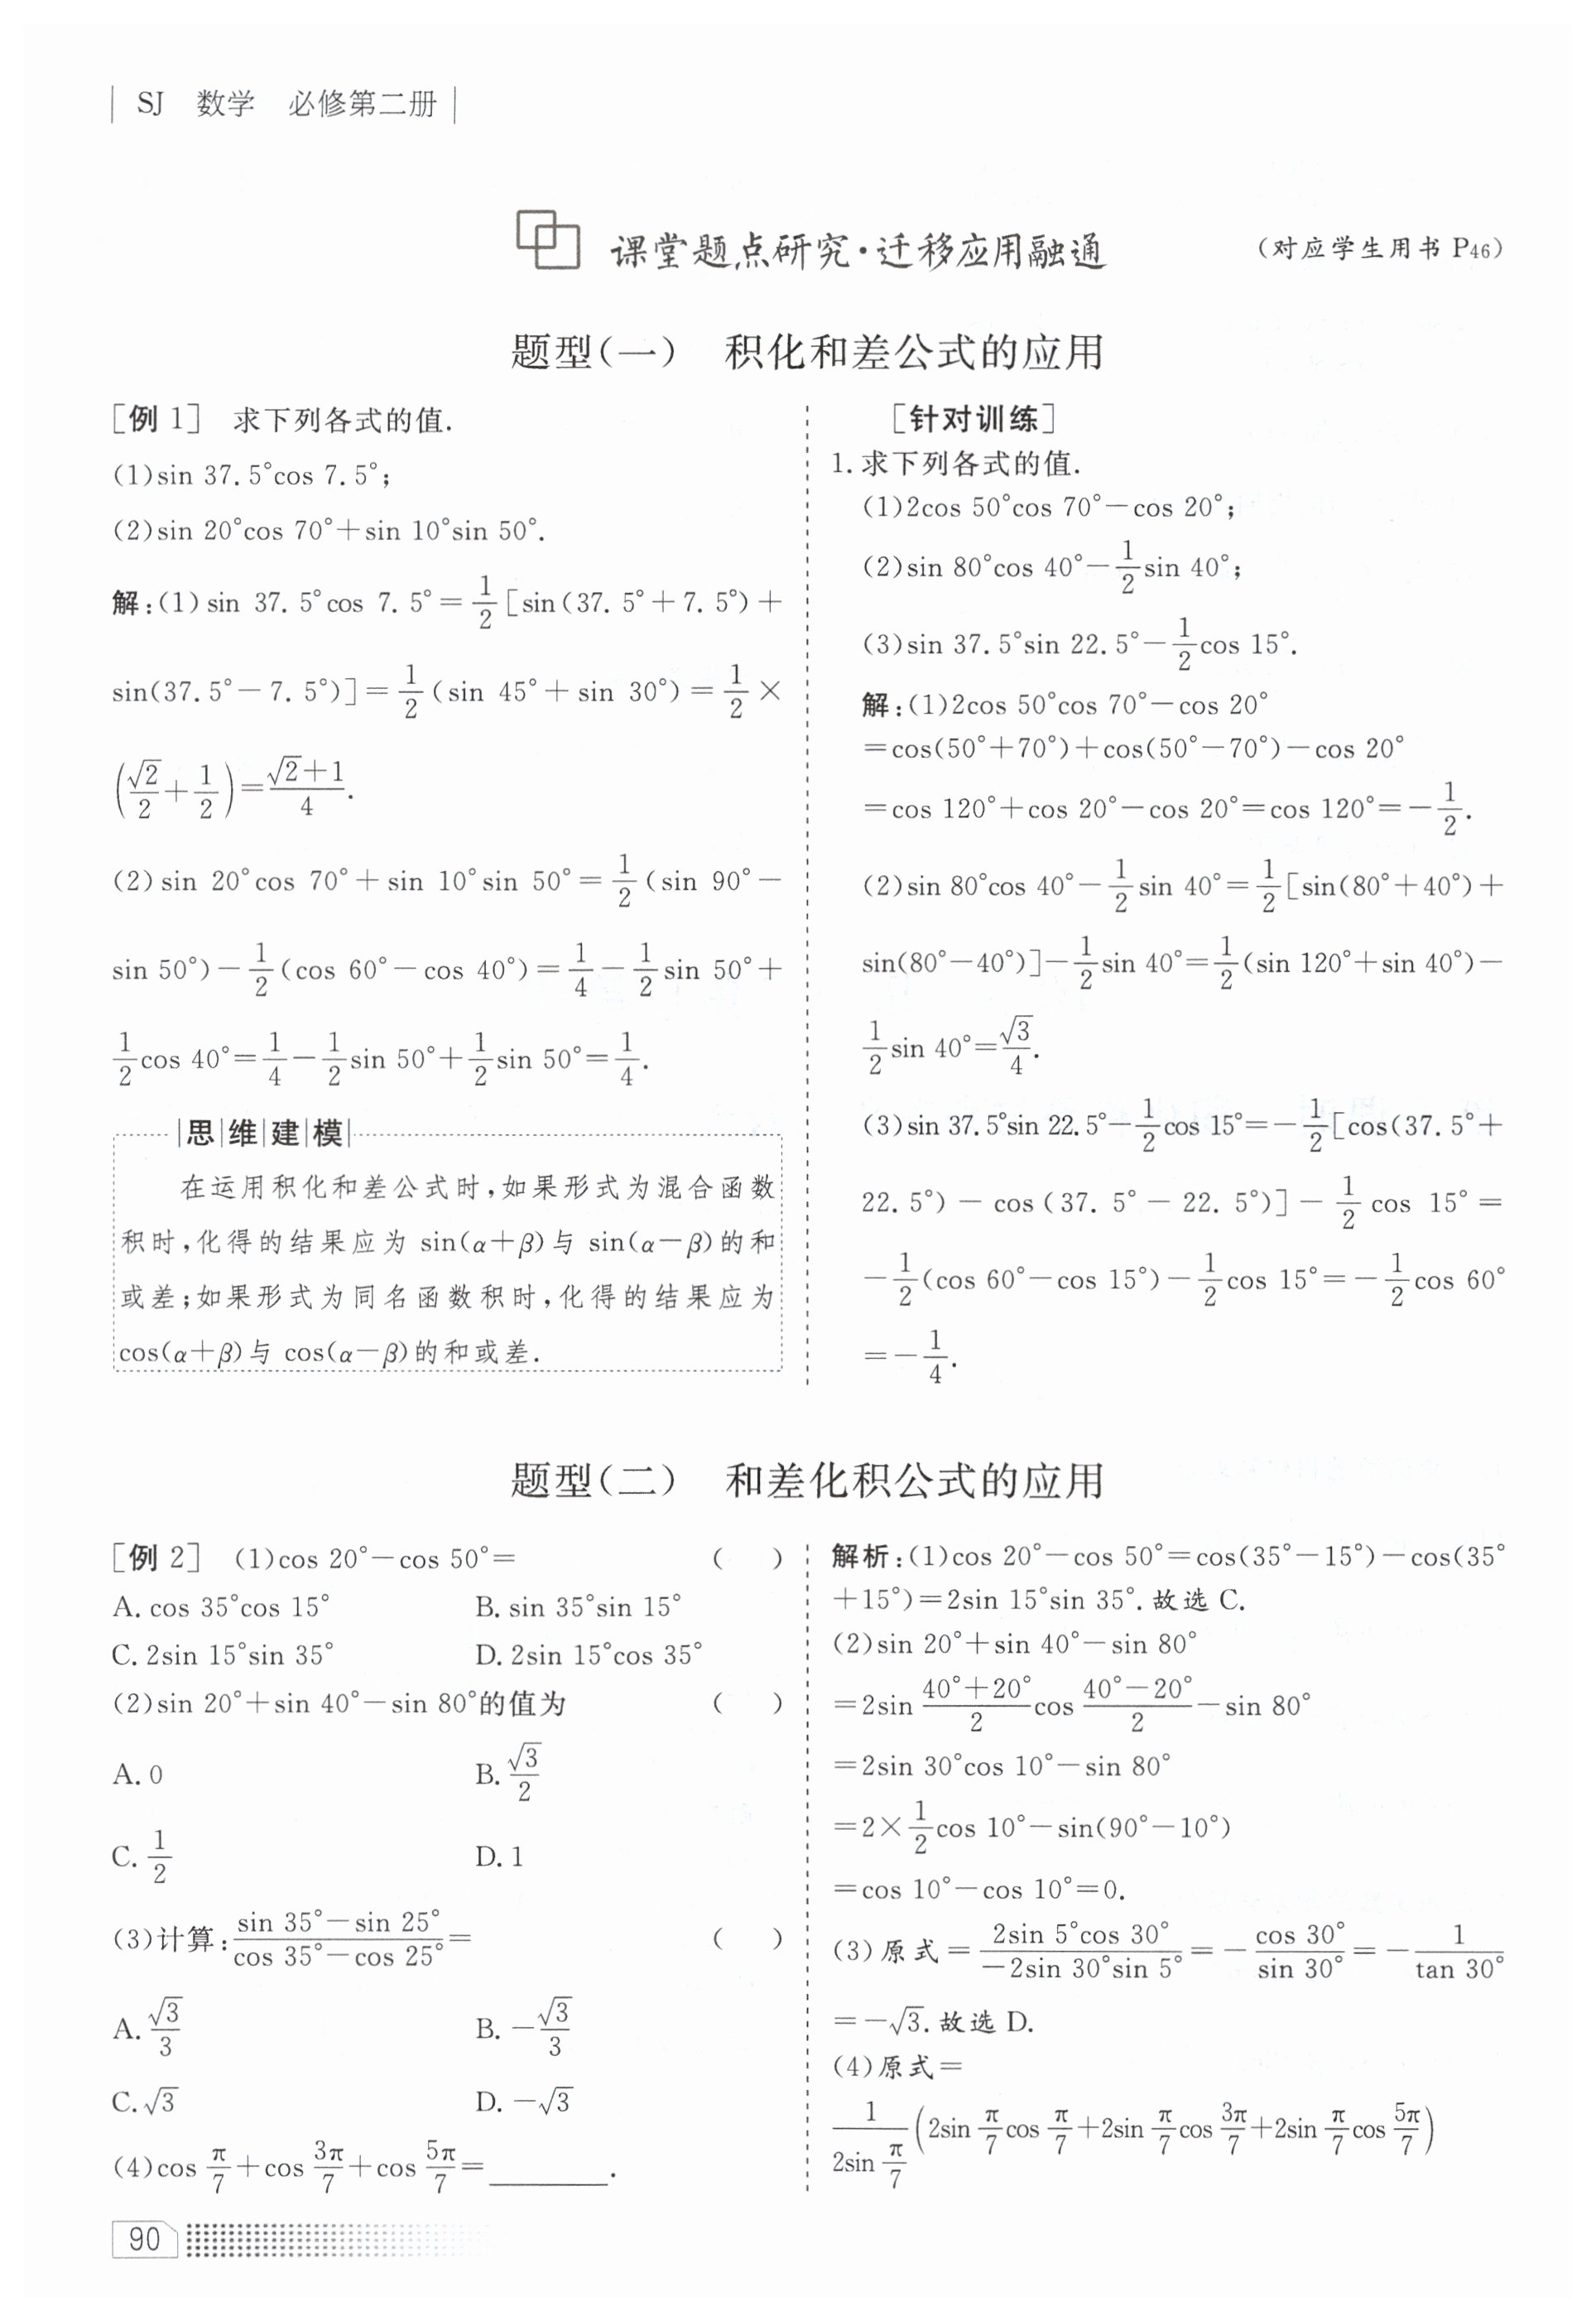 SJ 数学 必修第二册
课堂题点研究·迁移应用融通 (对应学生用书 P46)
题型(一) 积化和差公式的应用
[例 1] 求下列各式的值.
(1)sin 37.5°cos 7.5°;
(2)sin 20°cos 70°+sin 10°sin 50°.
解:(1)sin 37.5°cos 7.5°=1/2[sin(37.5°+7.5°)+
sin(37.5°-7.5°)]=1/2(sin 45°+sin 30°)=1/2×
(√2/2+1/2)=(√2+1)/4.
(2)sin 20°cos 70°+sin 10°sin 50°=1/2(sin 90°-
sin 50°)-1/2(cos 60°-cos 40°)=1/4-1/2sin 50°+
1/2cos 40°=1/4-1/2sin 50°+1/2sin 50°=1/4.
思维建模
在运用积化和差公式时,如果形式为混合函数
积时,化得的结果应为 sin(α+β)与 sin(α-β)的和
或差;如果形式为同名函数积时,化得的结果应为
cos(α+β)与 cos(α-β)的和或差.
[针对训练]
1.求下列各式的值.
(1)2cos 50°cos 70°-cos 20°;
(2)sin 80°cos 40°-1/2sin 40°;
(3)sin 37.5°sin 22.5°-1/2cos 15°.
解:(1)2cos 50°cos 70°-cos 20°
=cos(50°+70°)+cos(50°-70°)-cos 20°
=cos 120°+cos 20°-cos 20°=cos 120°=-1/2.
(2)sin 80°cos 40°-1/2sin 40°=1/2[sin(80°+40°)+
sin(80°-40°)]-1/2sin 40°=1/2(sin 120°+sin 40°)-
1/2sin 40°=√3/4.
(3)sin 37.5°sin 22.5°-1/2cos 15°=-1/2[cos(37.5°+
22.5°)-cos(37.5°-22.5°)]-1/2cos 15°=
-1/2(cos 60°-cos 15°)-1/2cos 15°=-1/2cos 60°
=-1/4.
题型(二) 和差化积公式的应用
[例 2] (1)cos 20°-cos 50°= ( )
A. cos 35°cos 15° B. sin 35°sin 15°
C. 2sin 15°sin 35° D. 2sin 15°cos 35°
(2)sin 20°+sin 40°-sin 80°的值为 ( )
A. 0 B. √3/2
C. 1/2 D. 1
(3)计算:(sin 35°-sin 25°)/(cos 35°-cos 25°)= ( )
A. √3/3 B. -√3/3
C. √3 D. -√3
(4)cos π/7+cos 3π/7+cos 5π/7=________.
解析:(1)cos 20°-cos 50°=cos(35°-15°)-cos(35°
+15°)=2sin 15°sin 35°.故选 C.
(2)sin 20°+sin 40°-sin 80°
=2sin (40°+20°)/2 cos (40°-20°)/2-sin 80°
=2sin 30°cos 10°-sin 80°
=2×1/2cos 10°-sin(90°-10°)
=cos 10°-cos 10°=0.
(3)原式=(2sin 5°cos 30°)/(-2sin 30°sin 5°)=-cos 30°/sin 30°=-1/tan 30°
=-√3.故选 D.
(4)原式=
1/(2sin π/7)(2sin π/7 cos π/7+2sin π/7 cos 3π/7+2sin π/7 cos 5π/7)
90